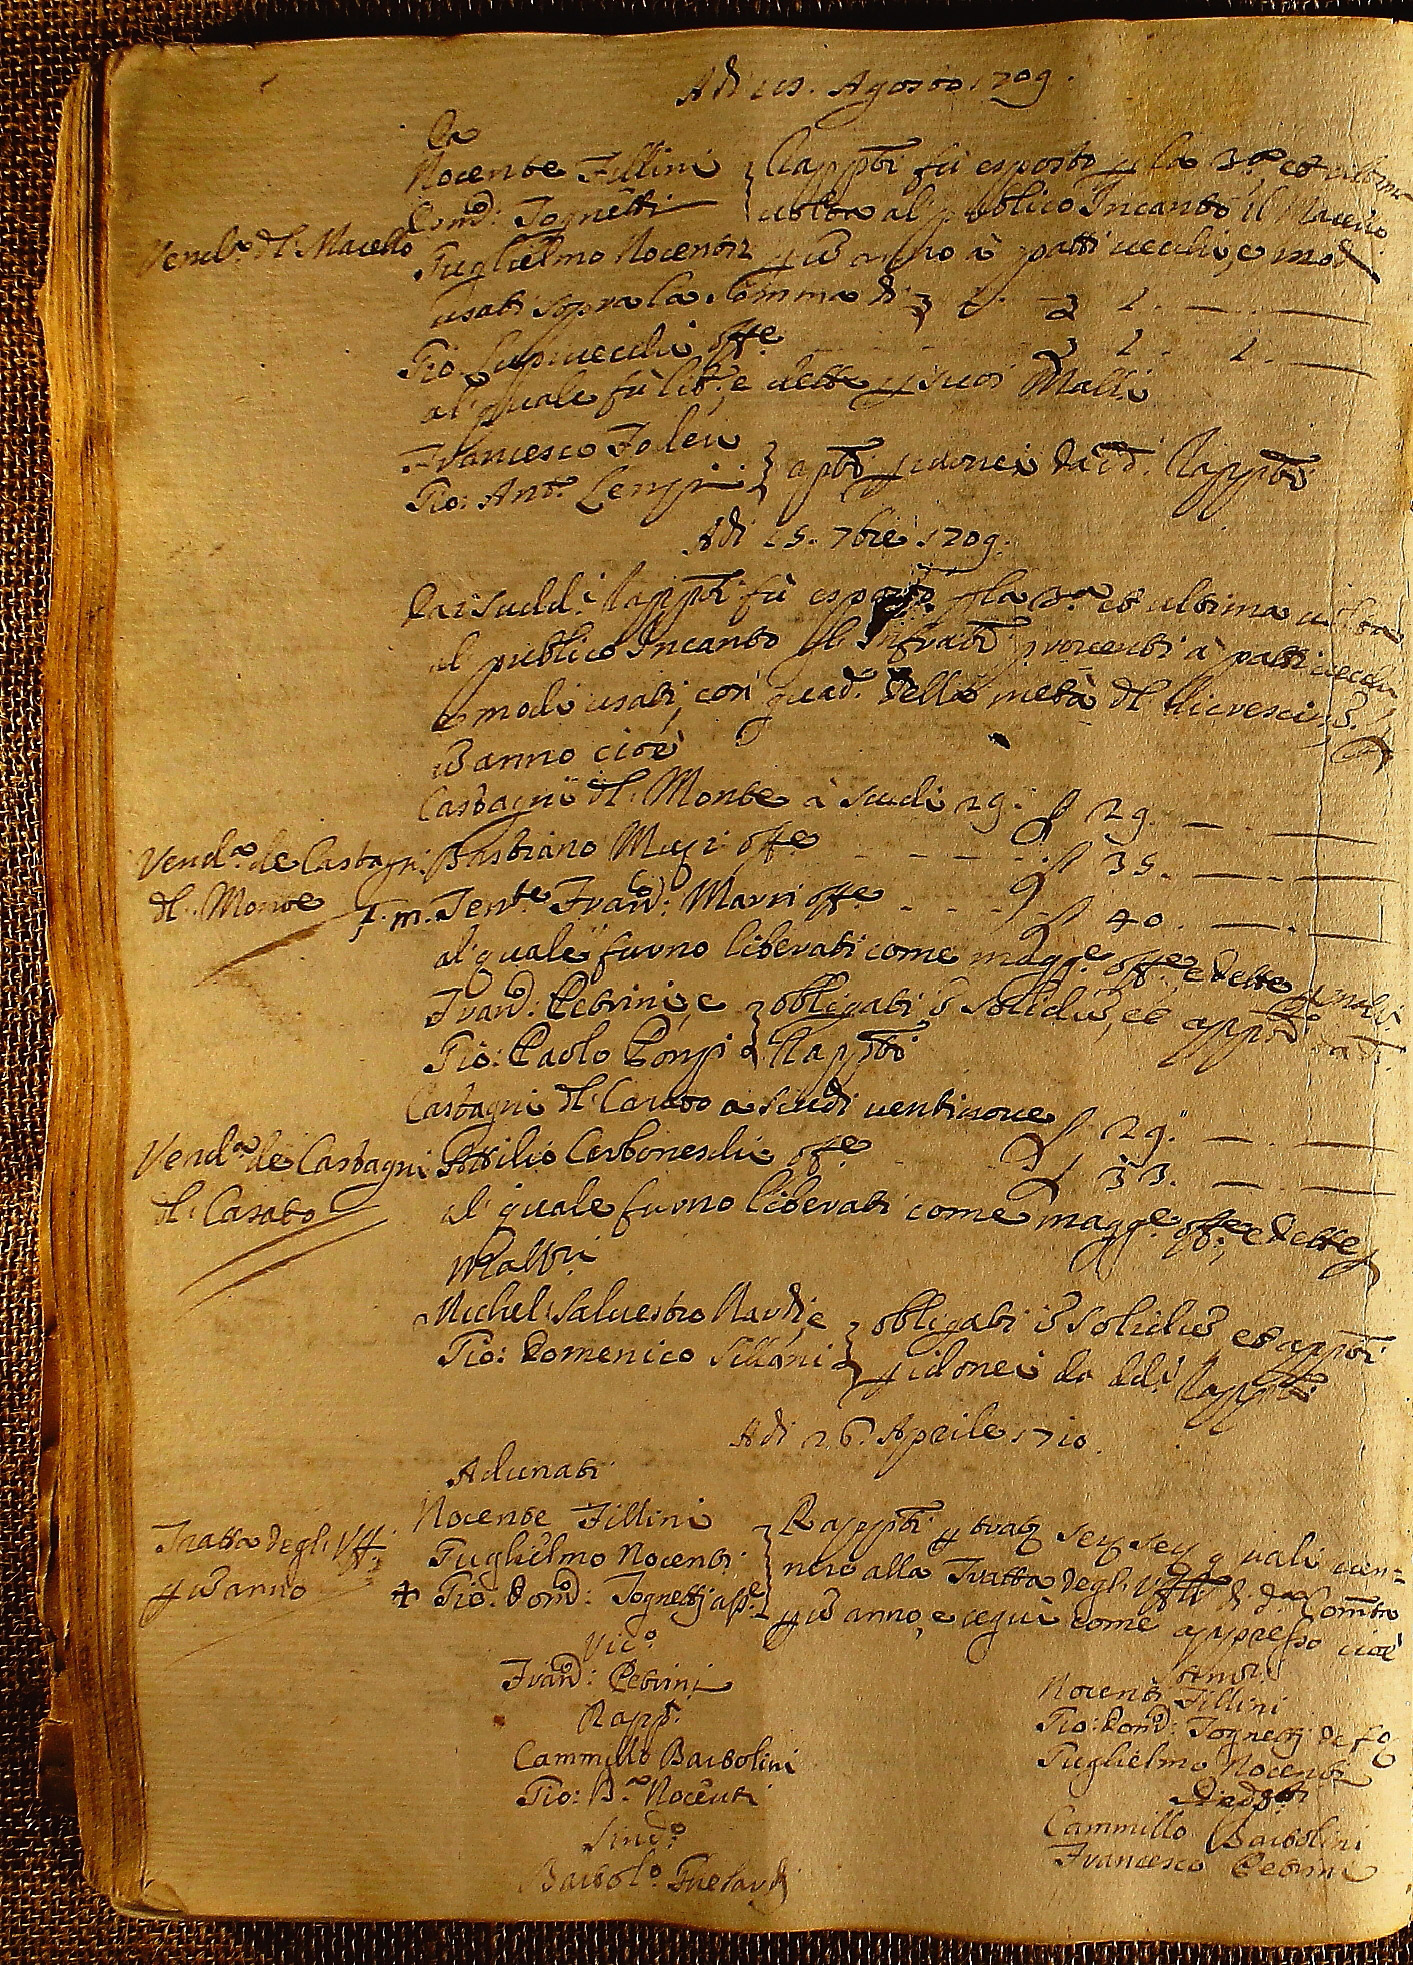 Adi 15. Agosto 1709.
Da
Nocente Fillini
Domd: Tognetti
Guglielmo Nocenti
Rapp.ti fù esposto p la 3.a et ultima
volta al publico Incanto il Macello
p un anno à patti vecchi, e modi
Vend.a d.l Macello
usati sopra la somma di
Gio: Lupivecchi off.e
al quale fù lib.o, e dette p suoi Mall.i
Francesco Folei
Gio: Ant.o Lenzi
app.ti p idonei da d.i Rapp.ti
Adi 15. 7bre 1709.
Dai Sudd.i Rapp.ti fù esposto p la 3.a et ultima volta
al publico Incanto gl'Infratti proventi à patti vecchi
e modi usati, con della metà d.l
un anno cioè
Castagni d.l Monte à scudi 29. 29. — —
Vend.a de Castagni
d.l Monte
Bastiano Mugi off.e 35. — —
T. m. Tent.e Franc: Marri off.e 40. — —
al quale furno liberati come magg.e off.e, e dette
Franc: Petrini, e
Gio: Paolo Ponzi
obligati in solidum, et app.ti da d.i
Rapp.ti
Castagni d.l Casato a scudi ventinove 29. — —
Vend.a de Castagni
d.l Casato
Attilio Cerboneschi off.e 33. — —
al quale furno liberati come magg.e off.e, e dette p
Mall.ri
Michel: Salvestro Nardi, e
Gio: Domenico Sillani
obligati in solidum et app.ti
p idonei da dd.i Rapp.ti
Adi 26. Aprile 1710.
Adunati
Nocente Fillini
Guglielmo Nocenti
+ Gio: Dom.co: Tognetti ass.e
Rapp.ti p quali ven=
nero alla Tratta degl'Uff.li di d.a Com.tà
p un anno, e seguì come appresso cioè
Tratta degl'Uff.
p un anno
Vic.o
Franc: Petrini
Rapp.ti
Cammillo Bartolini
Gio: B.a Nocenti
Sind.o
Bartol.o Guerardi
Nocente Fillini
Gio: Dom.co: Tognetti
Guglielmo Nocenti
Cammillo Bartolini
Francesco Petrini